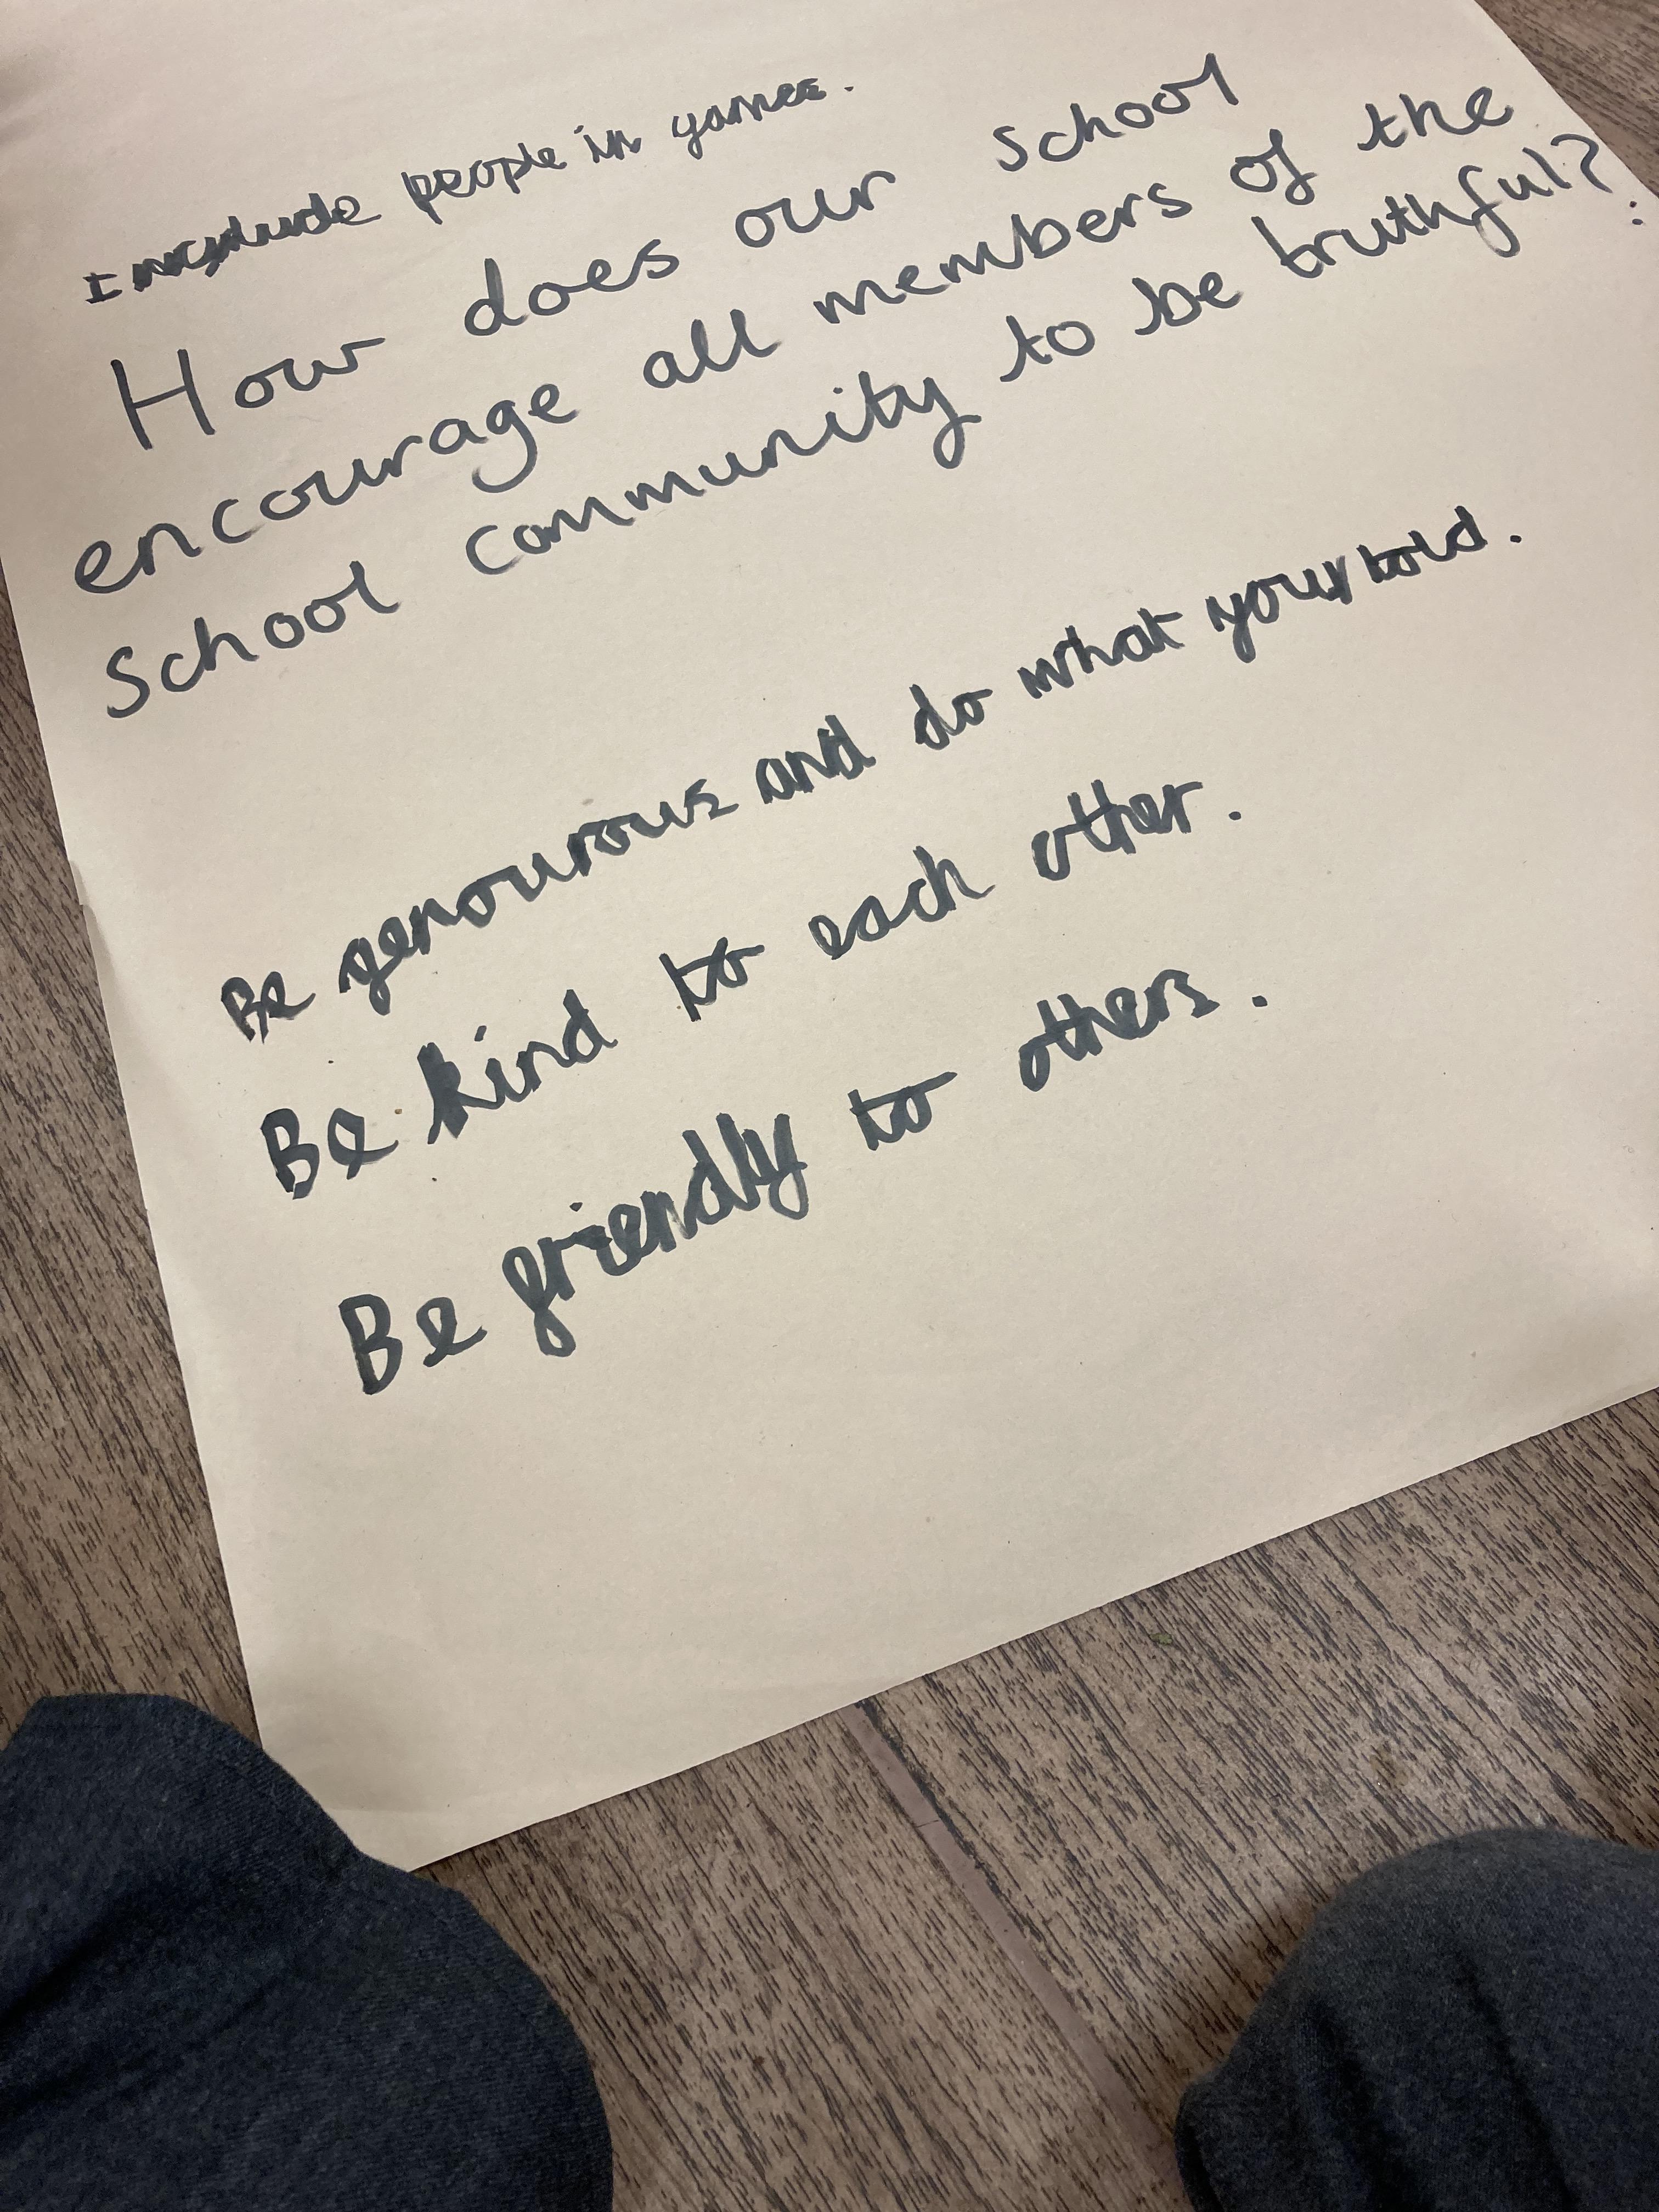 Include people in games.
How does our school
encourage all members of the
School community to be truthful?
Be genourous and do what your told.
Be kind to each other.
Be friendly to others.